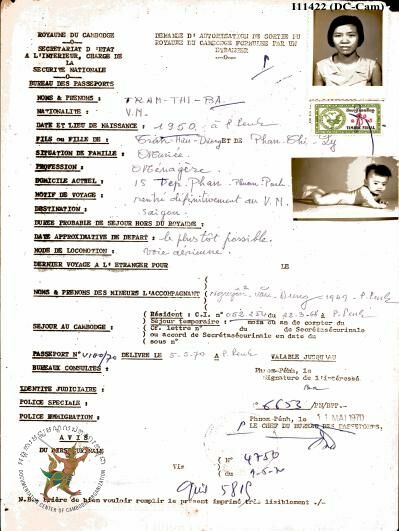 I11422 (DC-Cam)
ROYAUME DU CAMBODGE
SECRETARIAT D'ETAT
A L'INTERIEUR, CHARGE DE
LA
SECURITE NATIONALE
BUREAU DES PASSEPORTS
DEMANDE D'AUTORISATION DE SORTIE DU
ROYAUME DU CAMBODGE FORMULEE PAR UN
ETRANGER
NOMS & PRENOMS : TRAM-THI-BA
NATIONALITE : V.N.
DATE ET LIEU DE NAISSANCE : 1950, à P. Penh
FILS ou FILLE DE : ET DE Phan Thi Ly
SITUATION DE FAMILLE :
PROFESSION : Ménagère
DOMICILE ACTUEL : 15 Phnom-Penh
MOTIF DE VOYAGE : rentre définitivement au V.N.
DESTINATION : Saigon
DUREE PROBABLE DE SEJOUR HORS DU ROYAUME :
DATE APPROXIMATIVE DE DEPART : le plus tôt possible.
MODE DE LOCOMOTION : voie aérienne.
DERNIER VOYAGE A L'ETRANGER POUR LE
NOMS & PRENOMS DES MINEURS L'ACCOMPAGNANT
SEJOUR AU CAMBODGE :
Résident : C.I. n° du à P. Penh
Séjour temporaire : mois ou an de compter du
Cf. lettre n° du de Secrétasécurinale
ou accord de Secrétasécurinale en date du
sous n°
PASSEPORT N° DELIVRE LE 5-5-70 à P. Penh VALABLE JUSQU'AU
BUREAUX CONSULTES : Phnom-Pénh, le
Signature de l'intéressé
IDENTITE JUDICIAIRE :
POLICE SPECIALE : n° 6653 /PN/BPP.-
POLICE IMMIGRATION : Phnom-Pénh, le 11 MAI 1970
LE CHEF DU BUREAU DES PASSEPORTS,
AVIS
DU SECRETASECURINALE
Vis
N° 4750
du
DOCUMENTATION CENTER OF CAMBODIA
N.B. Prière de bien vouloir remplir le présent imprimé très lisiblement ./-